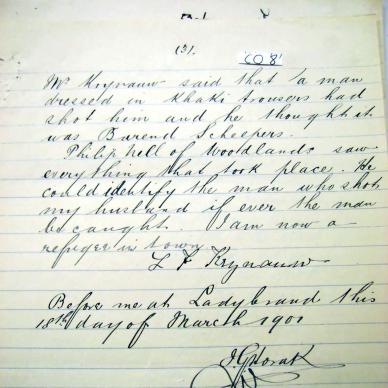 (3).
CO 8
Mr Krynauw said that a man
dressed in khaki trousers had
shot him and he thought it
was Barend Scheepers.
Philip Nell of Woodlands saw
everything that took place. He
could identify the man who shot
my husband if ever the man
be caught. I am now a
refugee in town
L F Krynauw
Before me at Ladybrand this
18th day of March 1901